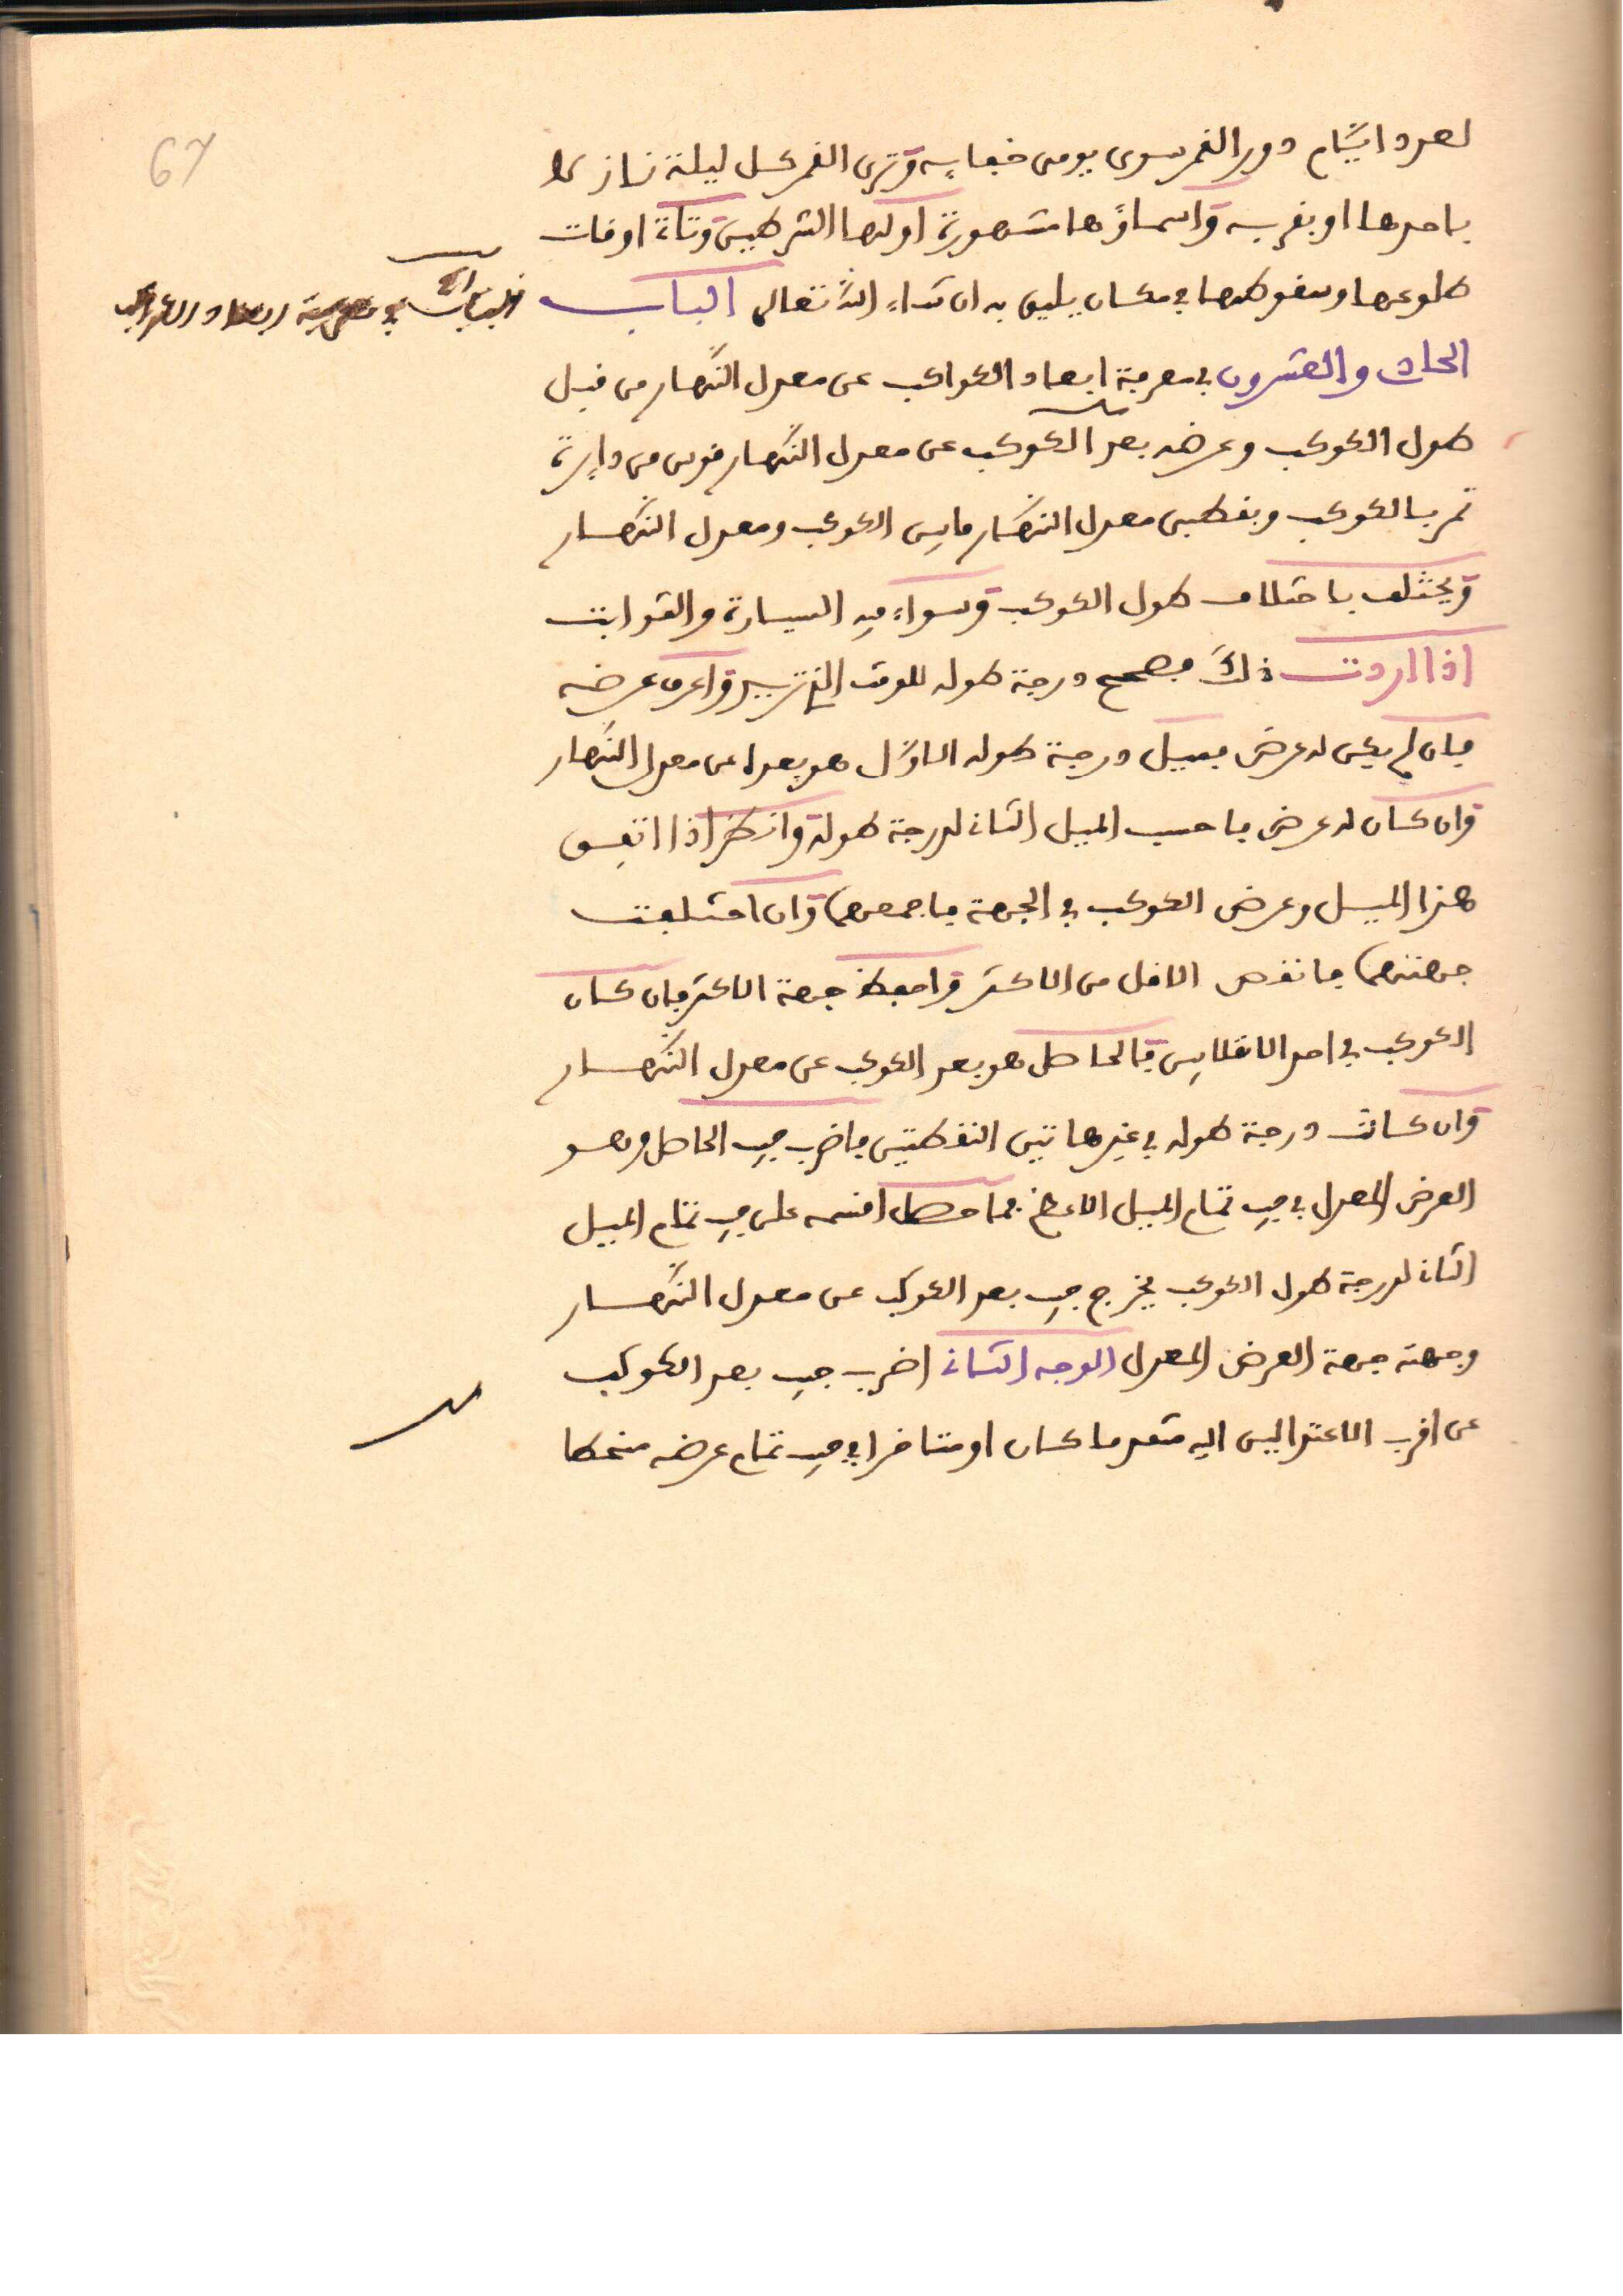 67
لعدد ايّام دور القمر سوى يومى خفايه وترى القمر كل ليلة نازلا
باحدها او بقربه واسماؤها مشهورة اولها الشرطين وتاتى اوقات
طلوعها وسقوطها في مكان يليق به ان شاء الله تعالى الباب
الباب في معرفة ابعاد الكواكب
الحادي والعشرون في معرفة ابعاد الكواكب عن معدل النّهار من قبل
طول الكوكب وعرضه بعد الكوكب عن معدل النّهار قوس من دايرة
تمر بالكوكب وبقطبى معدل النّهار ما بين الكوكب ومعدل النّهار
ويختلف باختلاف طول الكوكب وسواء فيه السيارة والثوابت
اذا اردت ذلك فصحح درجة طوله للوقت الذي تريد واعرف عرضه
فان لم يكن له عرض فميل درجة طوله الاوّل هو بعده عن معدل النّهار
وان كان له عرض فاحسب الميل الثاني لدرجة طوله وانظر اذا اتفق
هذا الميل وعرض الكوكب في الجهة فاجمعهما وان اختلفت
جهتهما فانقص الاقل من الاكثر واحفظ جهة الاكثر فان كان
الكوكب في احد الانقلابين فالحاصل هو بعد الكوكب عن معدل النّهار
وان كانت درجة طوله في غير هاتين النقطتين فاضرب جيب الحاصل وهو
العرض المعدل في جيب تمام الميل الاعظم فما حصل اقسمه على جيب تمام الميل
الثاني لدرجة طول الكوكب يخرج جيب بعد الكوكب عن معدل النّهار
وجهته جهة العرض المعدل الوجه الثاني اضرب جيب بعد الكوكب
عن اقرب الاعتدالين اليه متقدما كان او متاخرا في جيب تمام عرضه منحطا